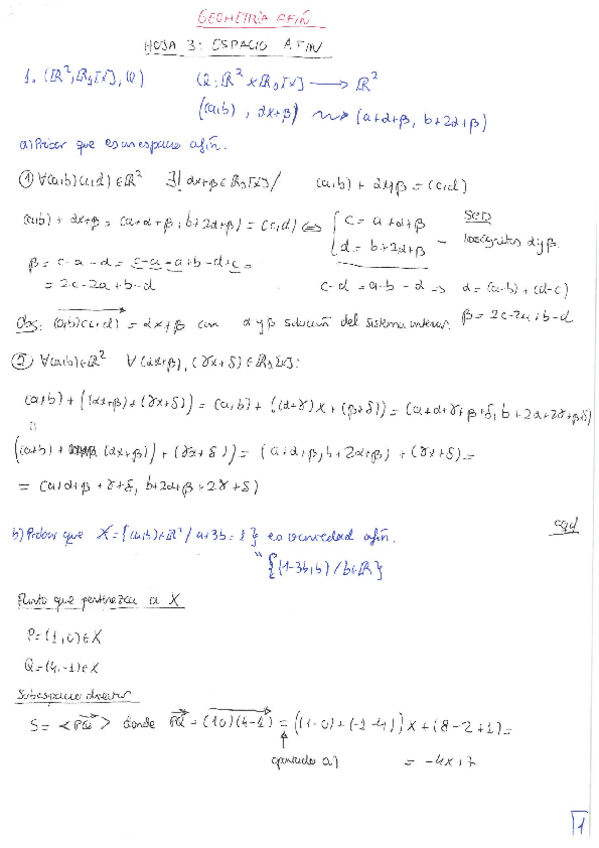 GEOMETRÍA AFÍN
HOJA 3: ESPACIO AFIN
1. (ℝ², ℝ₁[X], φ) φ: ℝ² × ℝ₁[X] ⟶ ℝ²
((a,b), αx+β) ⇝ (a+α+β, b+2α+β)
a) Probar que es un espacio afín.
① ∀(a,b)(c,d)∈ℝ² ∃! αx+β∈ℝ₁[X] / (a,b) + αx+β = (c,d)
(a,b) + αx+β = (a+α+β, b+2α+β) = (c,d) ⇔ { c = a+α+β
d = b+2α+β SCD
incógnitas α y β.
β = c-a-α = c-a-a+b-d+c =
= 2c-2a+b-d c-d = a-b-α ⇒ α = (a-b)+(d-c)
Obs: (a,b)(c,d) = αx+β con α y β solución del sistema anterior. β = 2c-2a+b-d
② ∀(a,b)∈ℝ² ∀(αx+β), (γx+δ)∈ℝ₁[X]:
(a,b) + ((αx+β)+(γx+δ)) = (a,b) + ((α+γ)x+(β+δ)) = (a+α+γ+β+δ, b+2α+2γ+β+δ)
((a,b) + (αx+β)) + (γx+δ) = (a+α+β, b+2α+β) + (γx+δ) =
= (a+α+β+γ+δ, b+2α+β+2γ+δ)
cqd
b) Probar que X = {(a,b)∈ℝ² / a+3b=1} es variedad afín.
"
{(1-3b,b) / b∈ℝ}
Punto que pertenezca a X
P=(1,0)∈X
Q=(4,-1)∈X
Subespacio director
S = <PQ> donde PQ = (1,0)(4,-1) = ((1-0)+(-1-4))x + (8-2+1) =
apartado a) = -4x+7
1